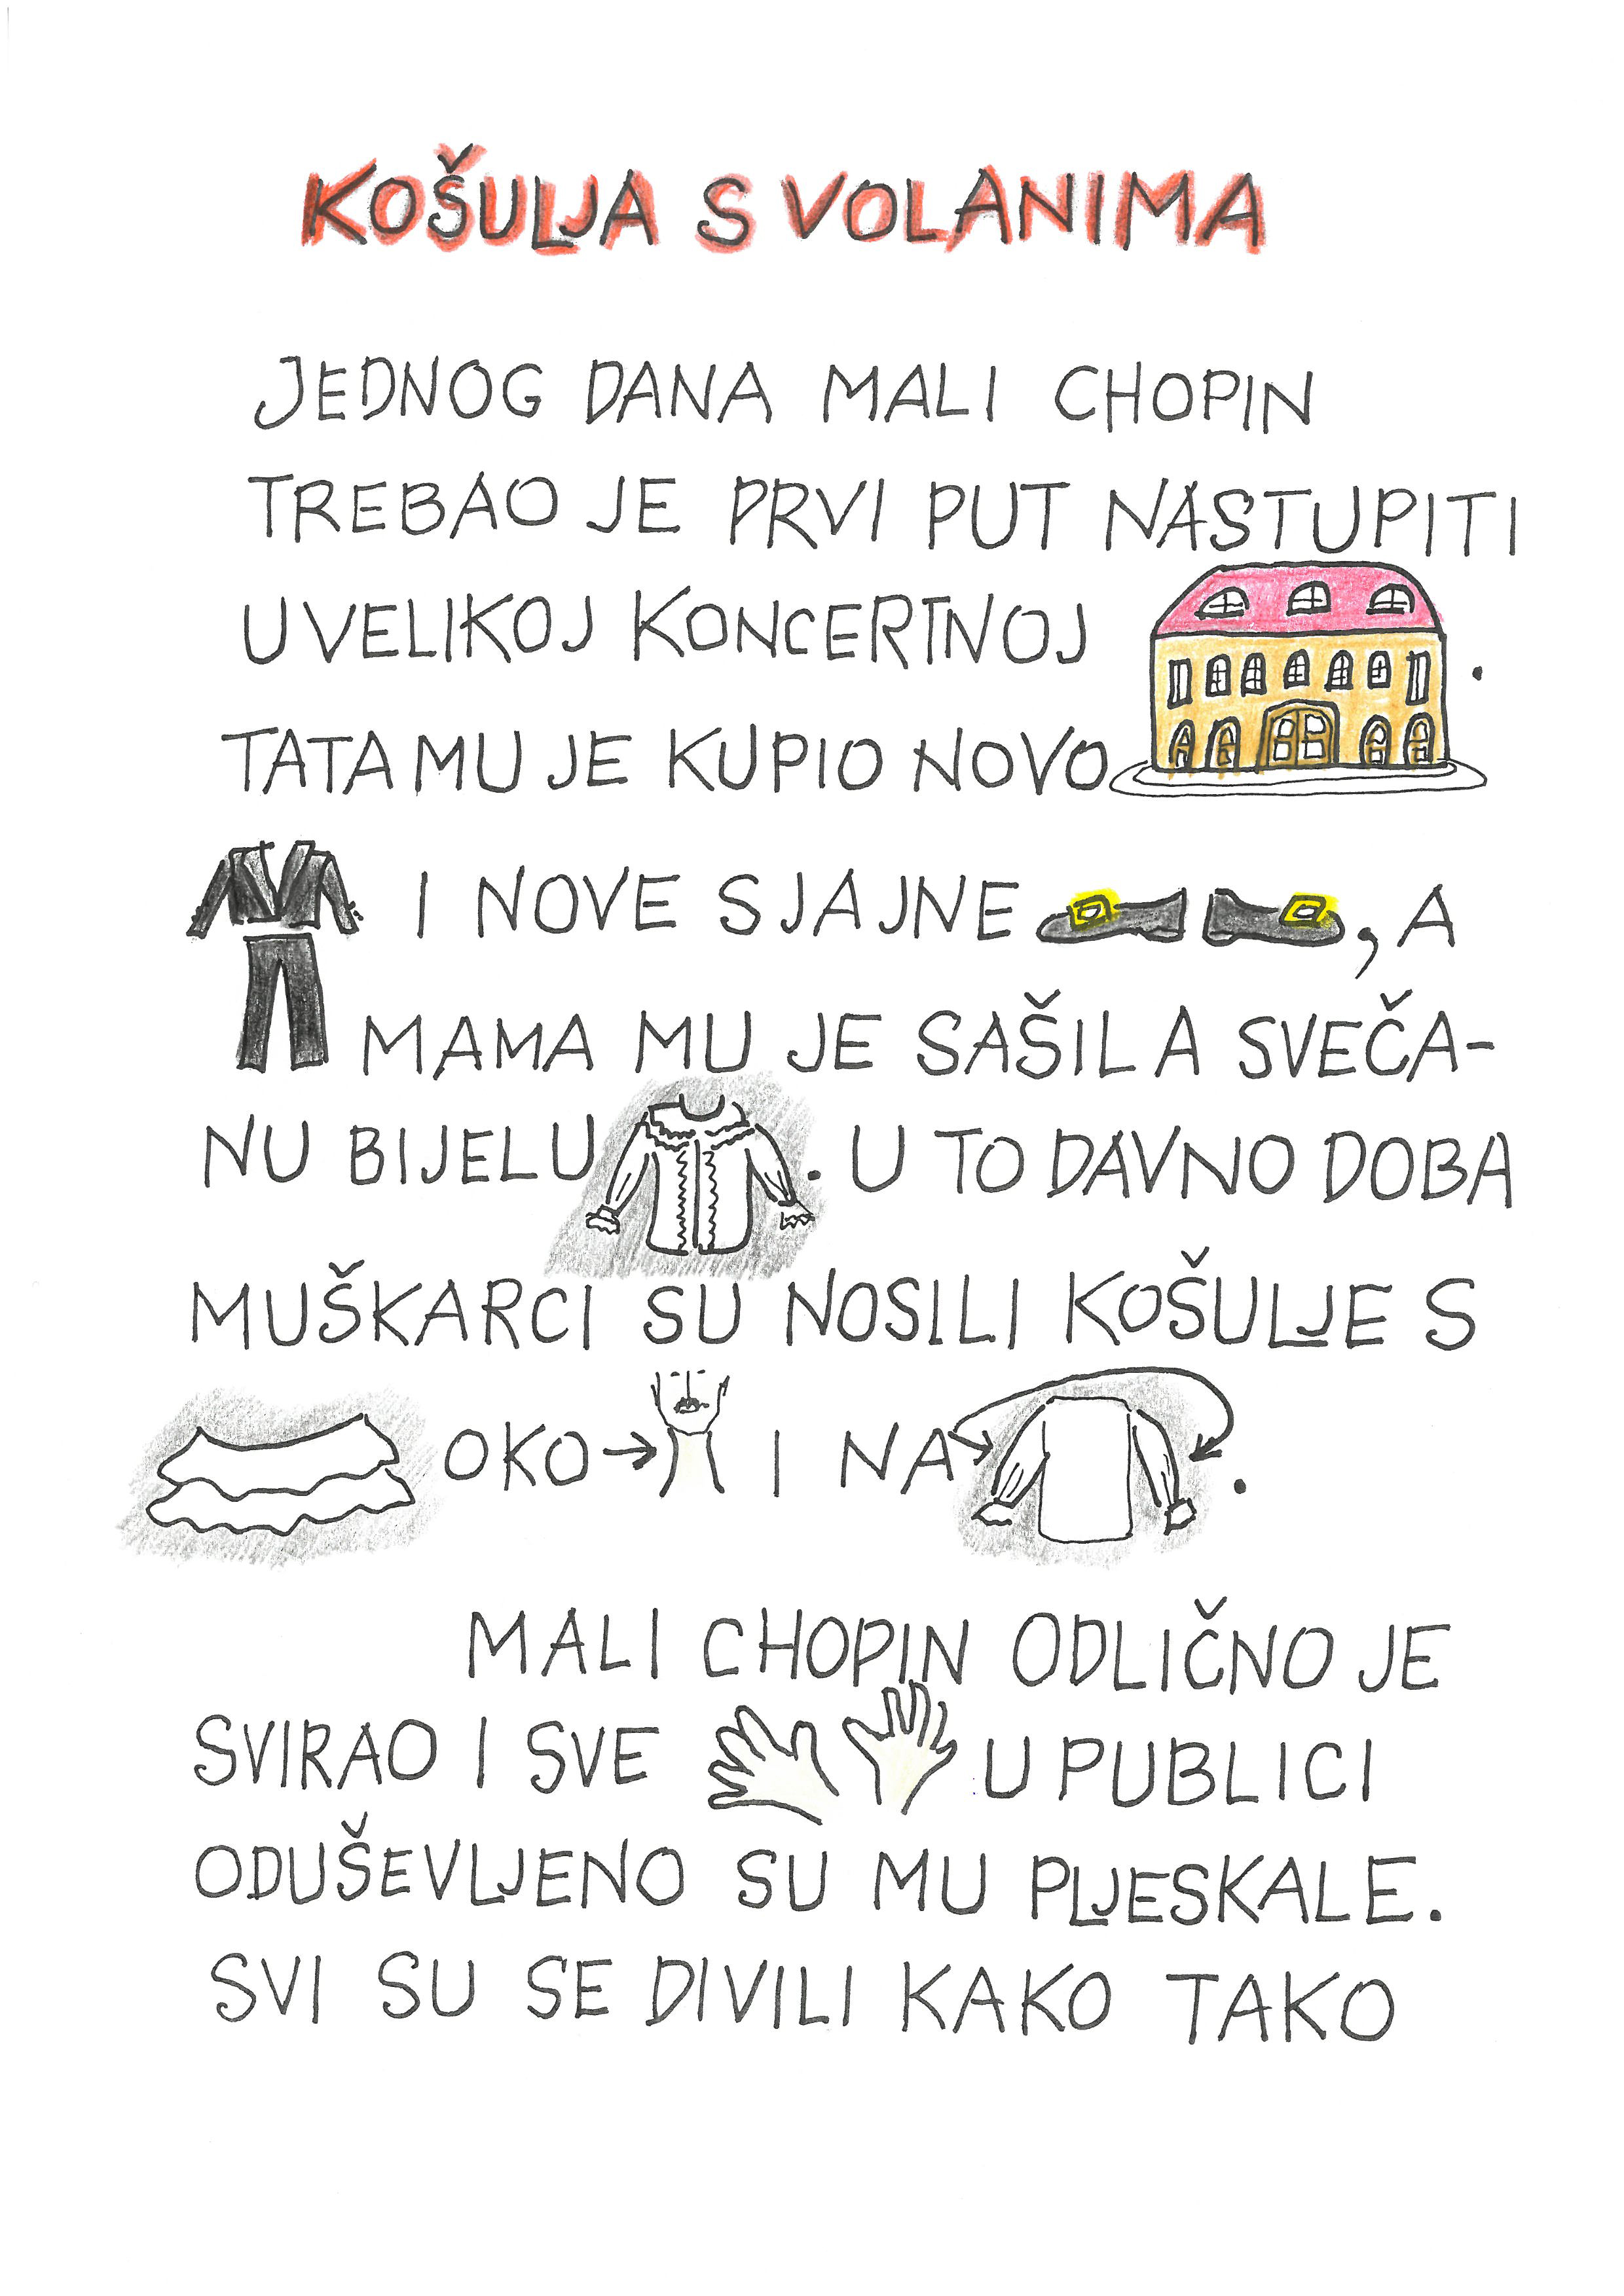 KOŠULJA S VOLANIMA
JEDNOG DANA MALI CHOPIN
TREBAO JE PRVI PUT NASTUPITI
U VELIKOJ KONCERTNOJ .
TATA MU JE KUPIO NOVO
I NOVE SJAJNE , A
MAMA MU JE SAŠILA SVEČA-
NU BIJELU . U TO DAVNO DOBA
MUŠKARCI SU NOSILI KOŠULJE S
OKO → I NA .
MALI CHOPIN ODLIČNO JE
SVIRAO I SVE U PUBLICI
ODUŠEVLJENO SU MU PLJESKALE.
SVI SU SE DIVILI KAKO TAKO